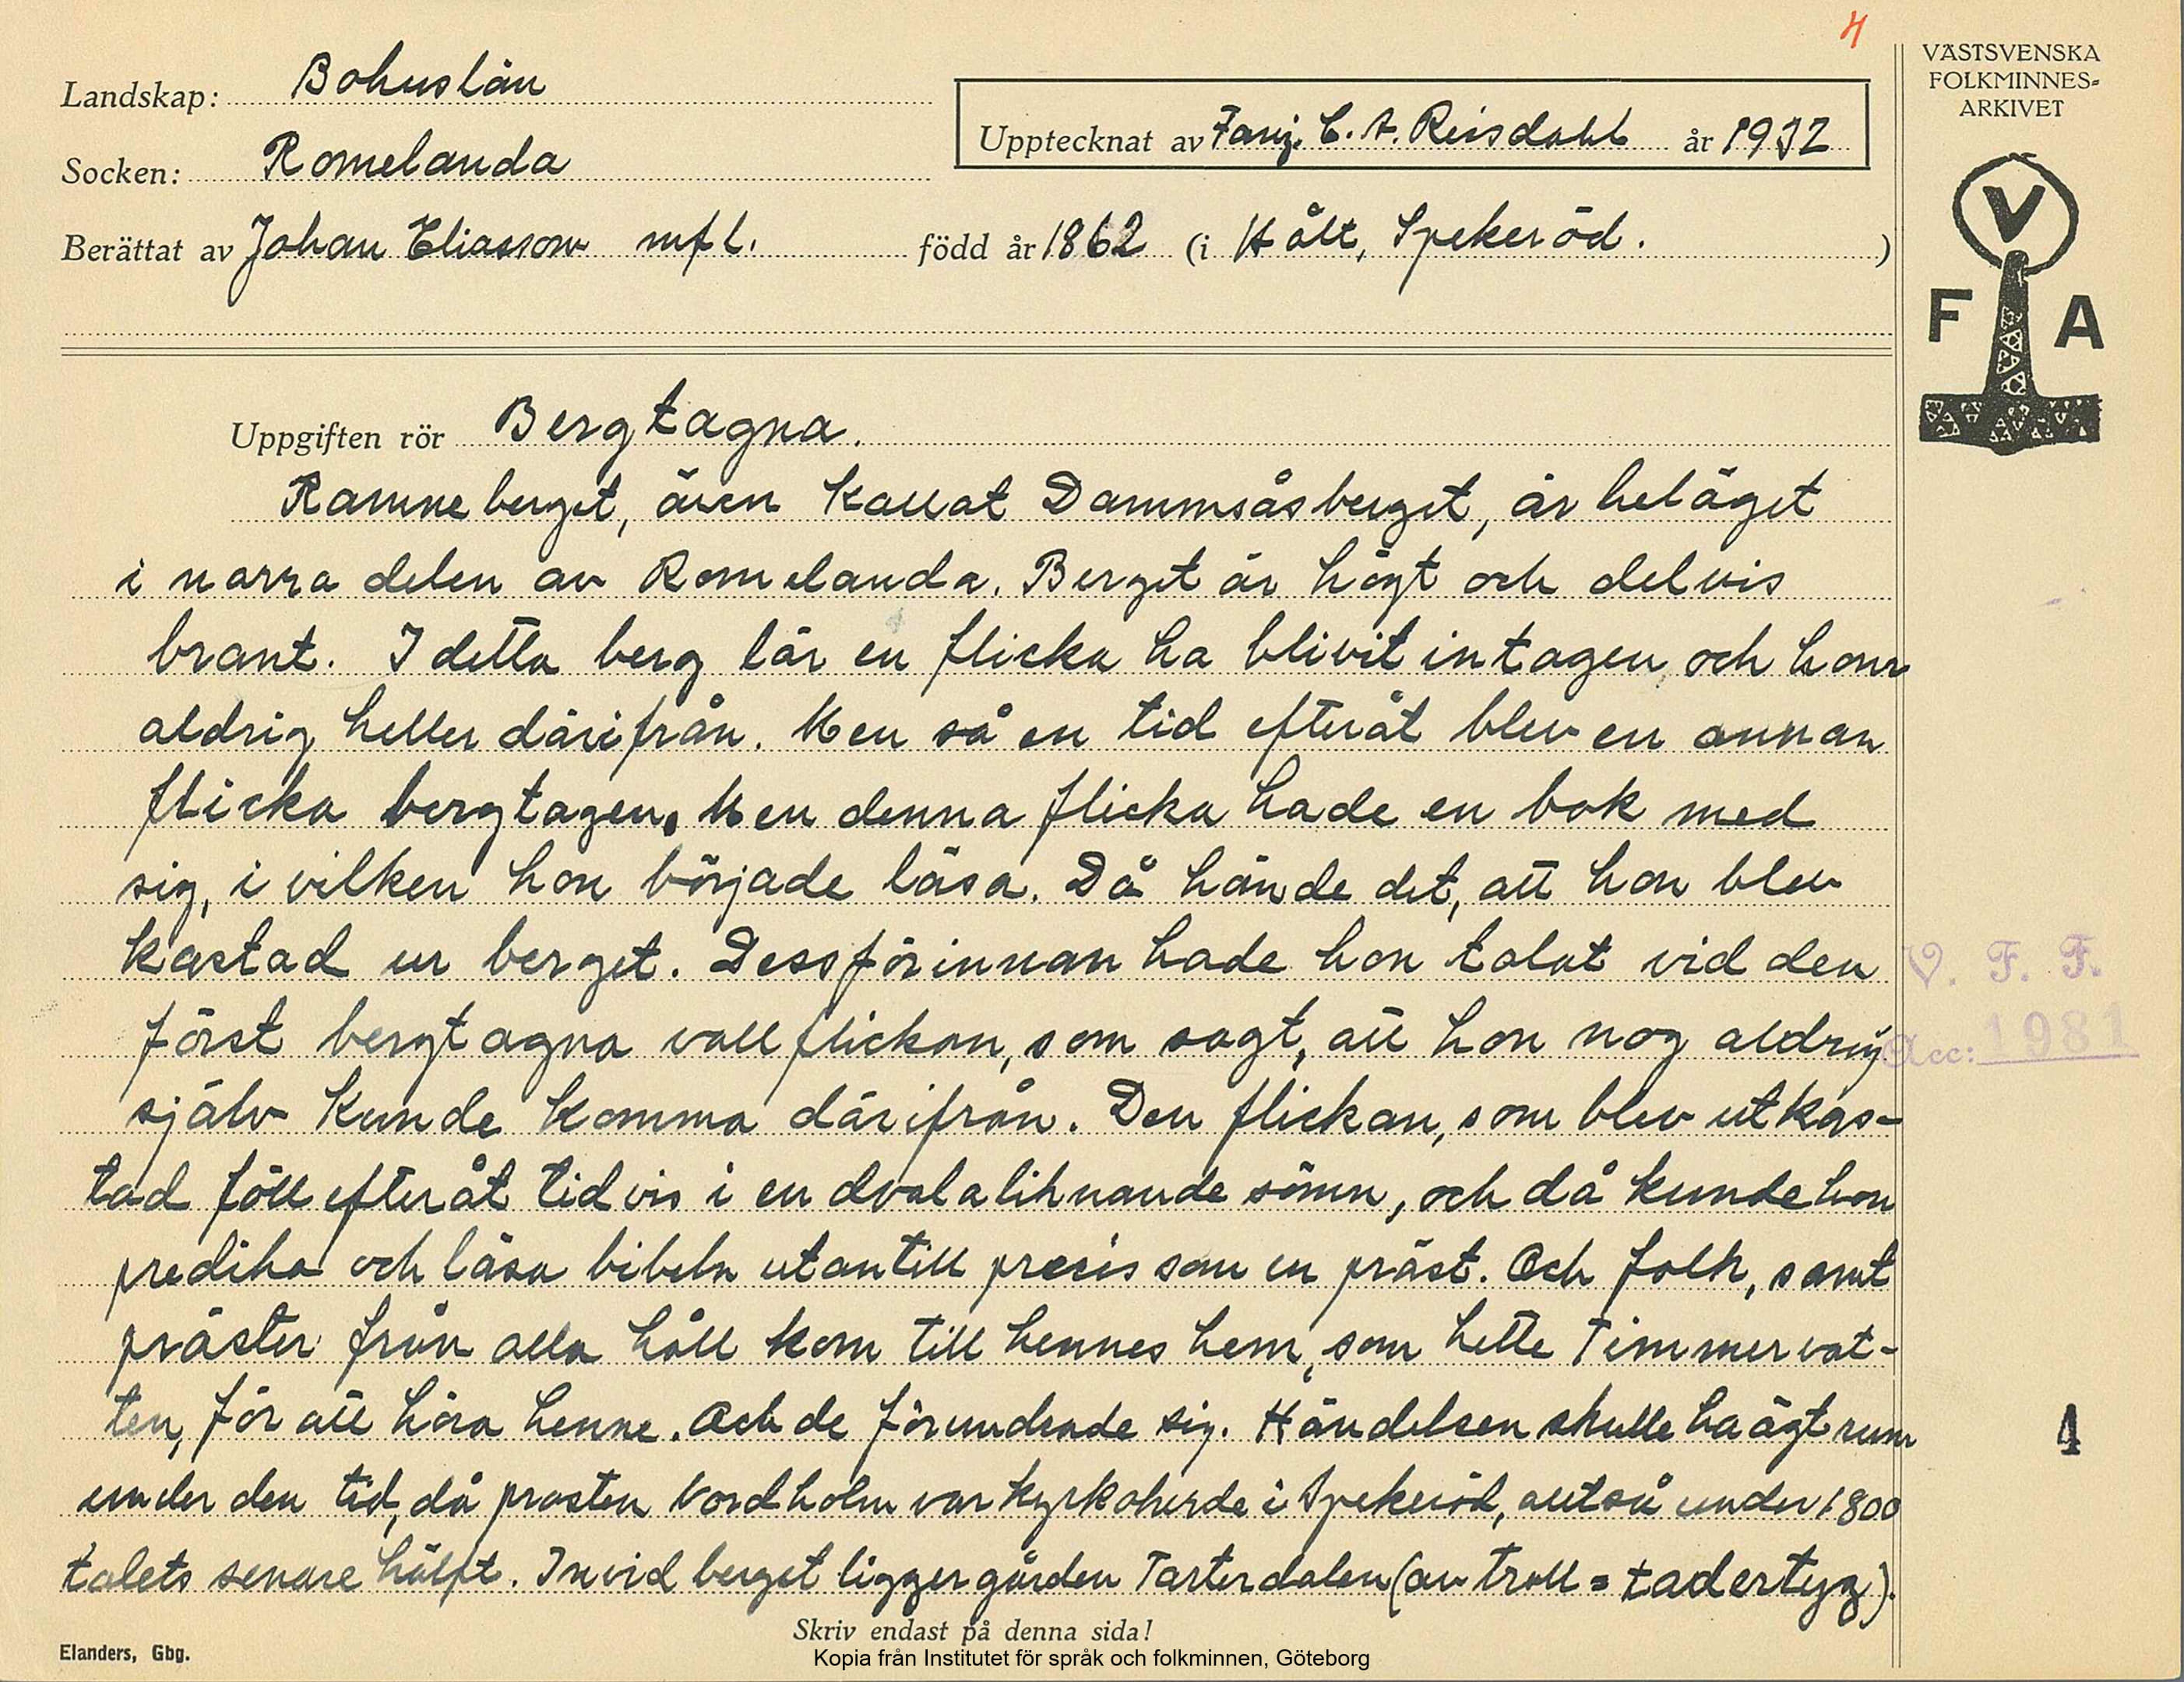 4
VÄSTSVENSKA
FOLKMINNES-
ARKIVET
V
F A
Landskap: Bohuslän
Upptecknat av Fanj. C. A. Reisdahl år 1932
Socken: Romelanda
Berättat av Johan Eliasson mfl. född år 1862 (i Hålt, Spekeröd. )
Uppgiften rör Bergtagna.
Ramneberget, även kallat Dammsåsberget, är beläget
i norra delen av Romelanda. Berget är högt och delvis
brant. I detta berg lär en flicka ha blivit intagen, och kom
aldrig heller därifrån. Men så en tid efteråt blev en annan
flicka bergtagen. Men denna flicka hade en bok med
sig, i vilken hon började läsa. Då hände det, att hon blev
kastad ur berget. Dessförinnan hade hon talat vid den
först bergtagna vallflickan, som sagt, att hon nog aldrig
själv kunde komma därifrån. Den flickan, som blev utkas-
tad föll efteråt tidvis i en dvalaliknande sömn, och då kunde hon
predika och läsa bibeln utantill precis som en präst. Och folk, samt
präster från alla håll kom till hennes hem, som hette Timmervat-
ten, för att höra henne. Och de förundrade sig. Händelsen skulle ha ägt rum
under den tid, då prosten Nordholm var kyrkoherde i Spekeröd, alltså under 1800
talets senare hälft. Invid berget ligger gården Tarterdalen (av troll = tadertyg).
V. F. F.
Acc: 1981
4
Skriv endast på denna sida!
Elanders, Gbg.
Kopia från Institutet för språk och folkminnen, Göteborg